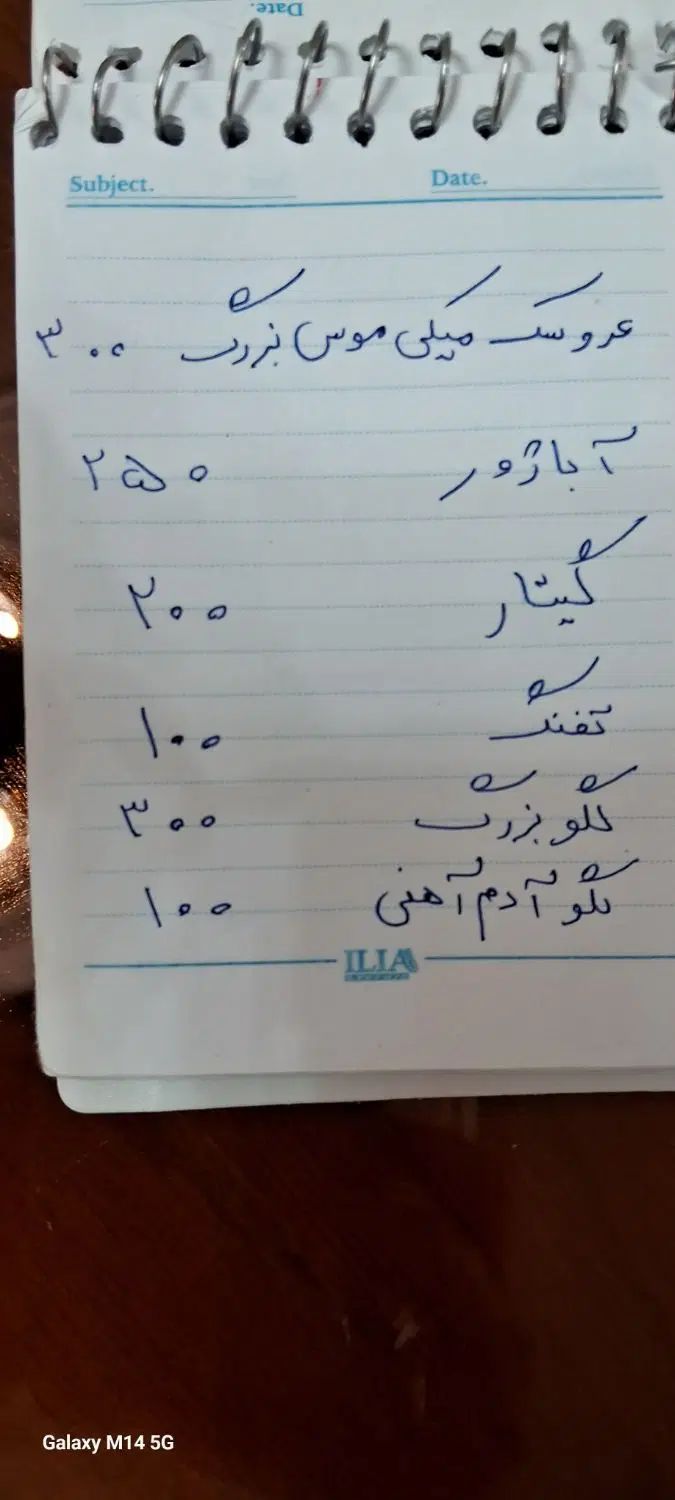 Date.
Subject. Date.
عروسک میکی موس بزرگ ۳۰۰
آباژور ۲۵۰
گیتار ۲۰۰
تفنگ ۱۰۰
لگو بزرگ ۳۰۰
لگو آدم آهنی ۱۰۰
ILIA
Galaxy M14 5G